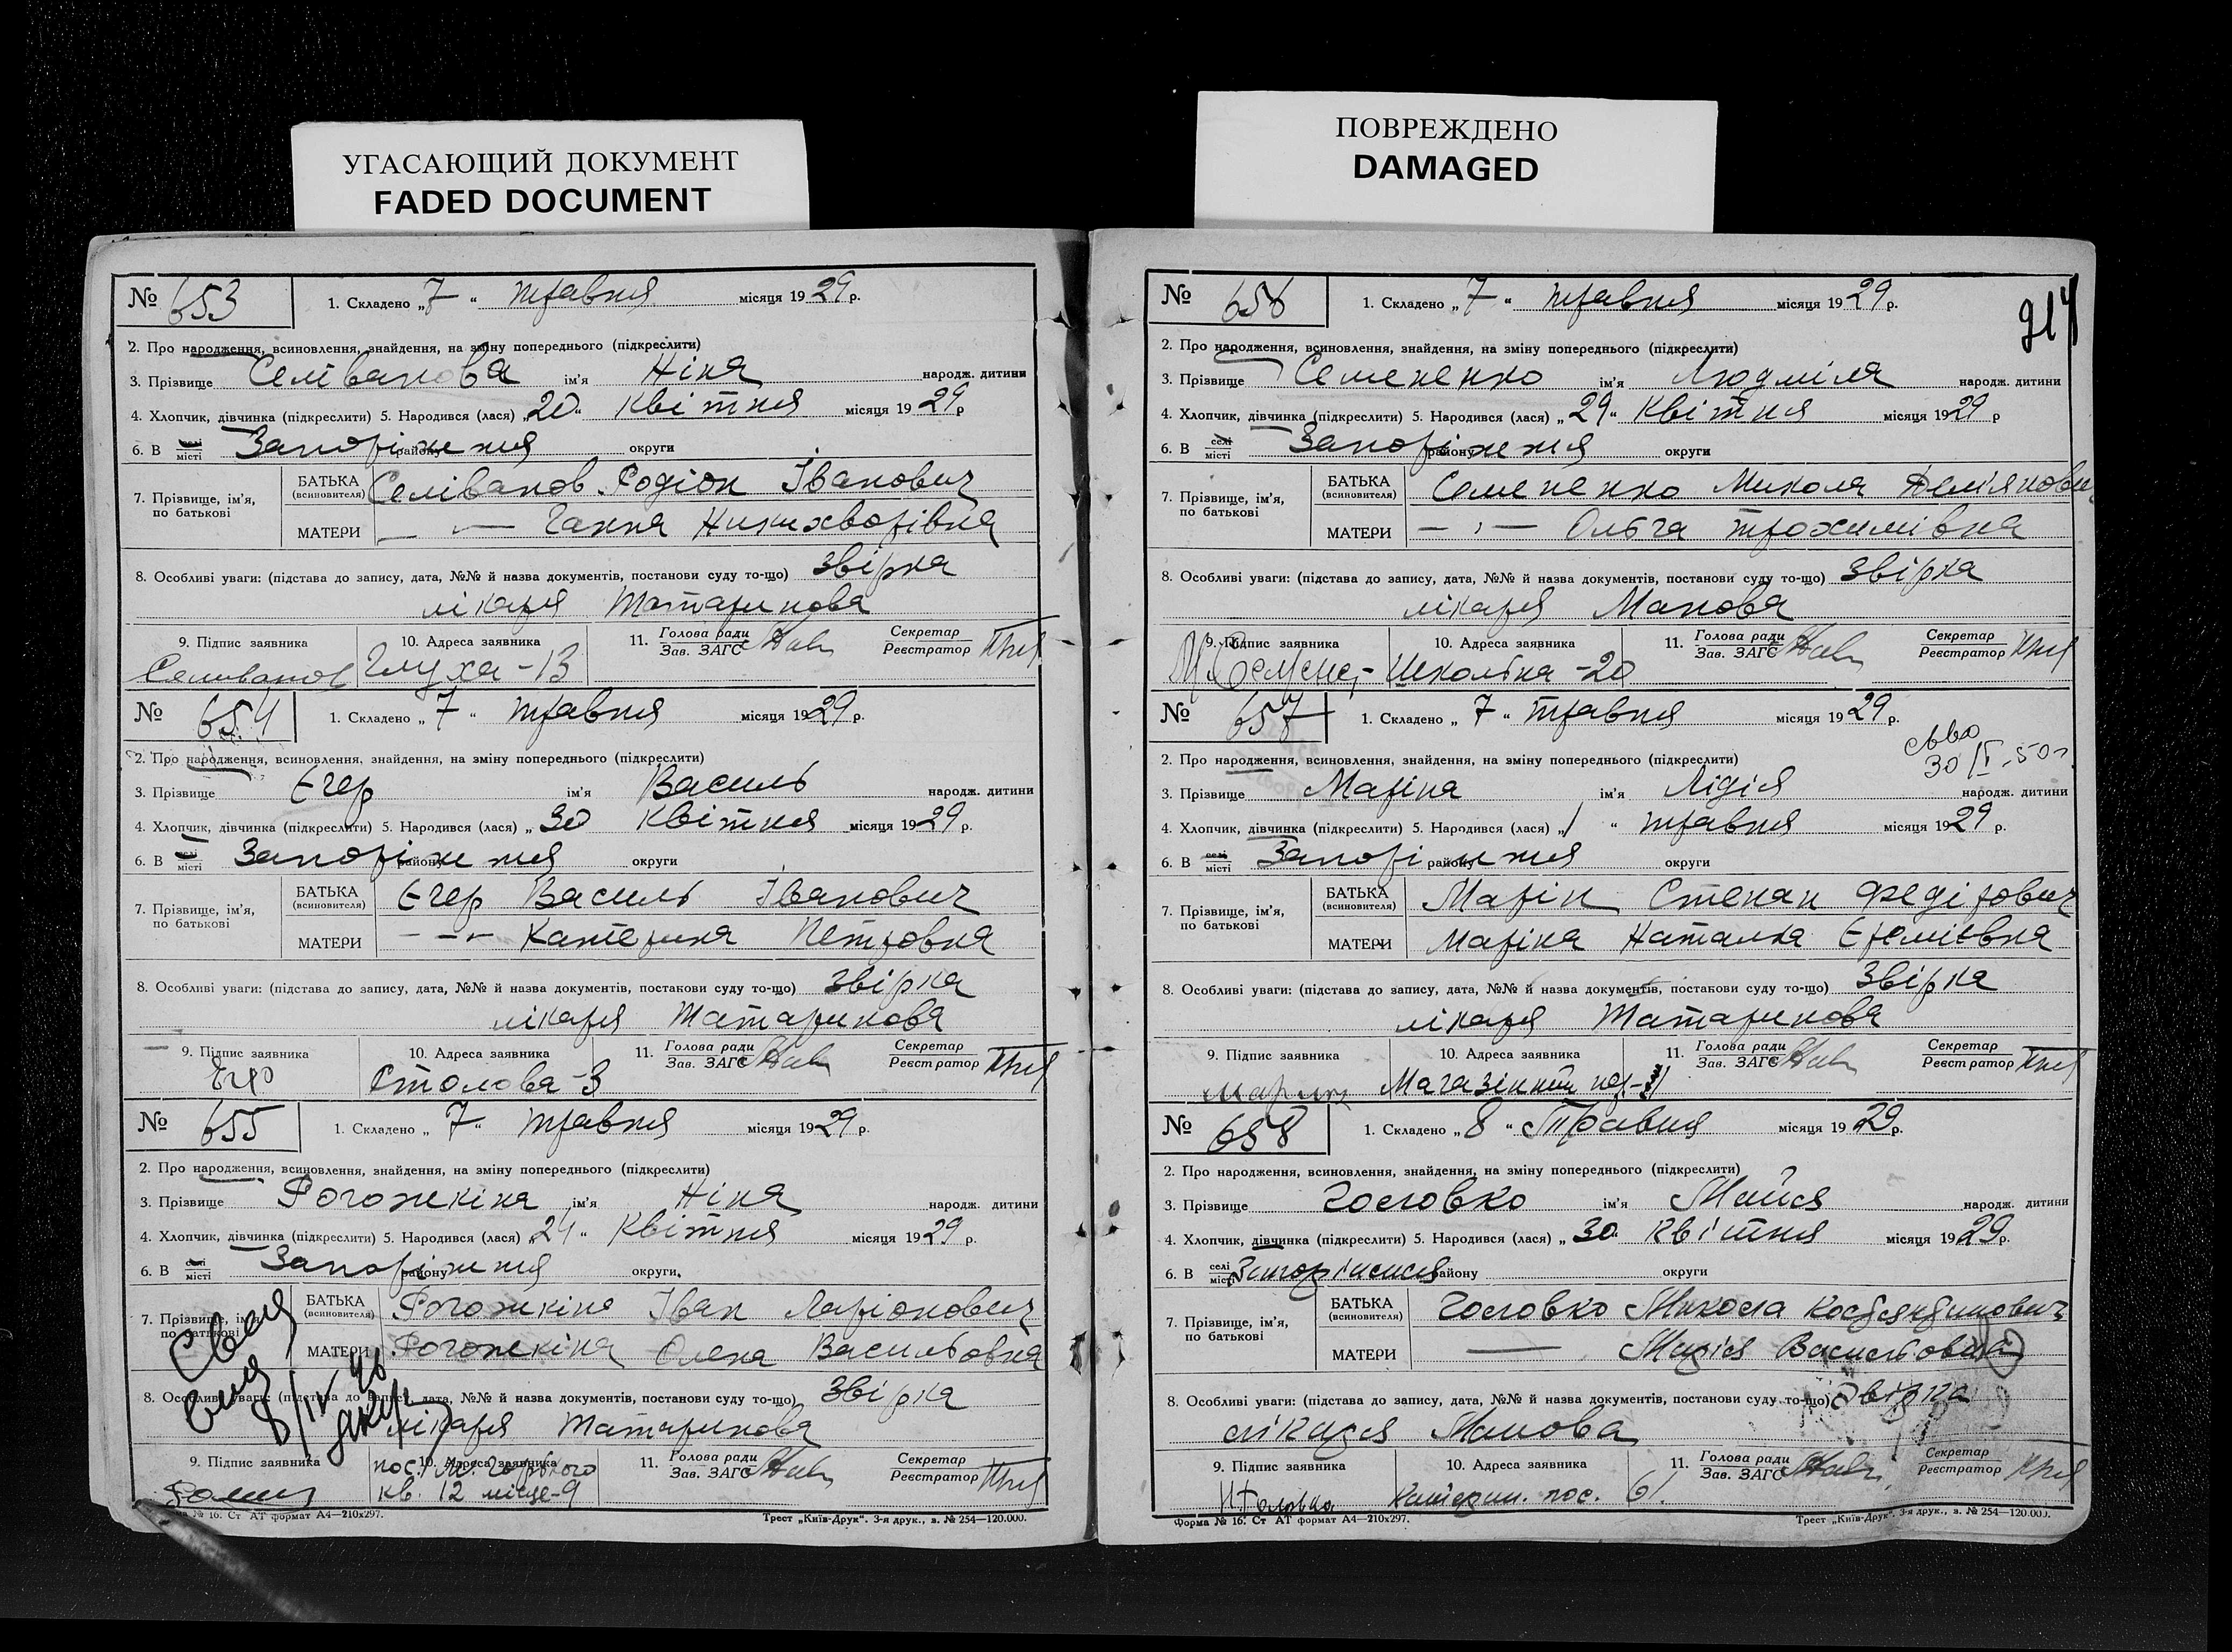 УГАСАЮЩИЙ ДОКУМЕНТ
FADED DOCUMENT
ПОВРЕЖДЕНО
DAMAGED
№ 653 1. Складено „7“ травня місяця 1929 р.
2. Про народження, всиновлення, знайдення, на зміну попереднього (підкреслити)
3. Прізвище Селіванова ім'я Ніна народж. дитини
4. Хлопчик, дівчинка (підкреслити) 5. Народився (лася) „20“ квітня місяця 1929 р
6. В селі місті Запоріжжя району округи
7. Прізвище, ім'я, по батькові
БАТЬКА (всиновителя) Селіванов Родіон Іванович
МАТЕРИ — Ганна Никихворівна
8. Особливі уваги: (підстава до запису, дата, №№ й назва документів, постанови суду то-що) Звірка
лікаря Татаринова
9. Підпис заявника 10. Адреса заявника 11. Голова ради Зав. ЗАГС Секретар Реєстратор
Селиванов Глуха-13
№ 654 1. Складено „7“ травня місяця 1929 р.
2. Про народження, всиновлення, знайдення, на зміну попереднього (підкреслити)
3. Прізвище Єгер ім'я Василь народж. дитини
4. Хлопчик, дівчинка (підкреслити) 5. Народився (лася) „30 квітня місяця 1929 р.
6. В селі місті Запоріжжя району округи
7. Прізвище, ім'я, по батькові
БАТЬКА (всиновителя) Єгер Василь Іванович
МАТЕРИ — Катерина Петровна
8. Особливі уваги: (підстава до запису, дата, №№ й назва документів, постанови суду то-що) Звірка
лікаря Татаринова
9. Підпис заявника 10. Адреса заявника 11. Голова ради Зав. ЗАГС Секретар Реєстратор
Столова-3
№ 655 1. Складено „7“ травня місяця 1929 р.
2. Про народження, всиновлення, знайдення, на зміну попереднього (підкреслити)
3. Прізвище Рогожкіна ім'я Ніна народж. дитини
4. Хлопчик, дівчинка (підкреслити) 5. Народився (лася) „24“ квітня місяця 1929 р.
6. В селі місті Запоріжжя району округи
7. Прізвище, ім'я, по батькові
БАТЬКА (всиновителя) Рогожкіна Іван Ларіонович
МАТЕРИ Рогожкіна Олена Васильовна
8. Особливі уваги: (підстава до запису, дата, №№ й назва документів, постанови суду то-що) Звірка
лікаря Татаринова
9. Підпис заявника 10. Адреса заявника 11. Голова ради Зав. ЗАГС Секретар Реєстратор
пос. М. Горького
кв. 12 місце-9
№ 16. Ст АТ формат А4—210х297. Трест „Київ-Друк“. 3-я друк., з. № 254—120.000.
№ 656 1. Складено „7“ травня місяця 1929 р.
2. Про народження, всиновлення, знайдення, на зміну попереднього (підкреслити)
3. Прізвище Семененко ім'я Людміля народж. дитини
4. Хлопчик, дівчинка (підкреслити) 5. Народився (лася) „29“ квітня місяця 1929 р
6. В селі місті Запоріжжя району округи
7. Прізвище, ім'я, по батькові
БАТЬКА (всиновителя) Семененко Микола Дем'янович
МАТЕРИ — Ольга Трохимівна
8. Особливі уваги: (підстава до запису, дата, №№ й назва документів, постанови суду то-що) Звірка
лікаря Манова
9. Підпис заявника 10. Адреса заявника 11. Голова ради Зав. ЗАГС Секретар Реєстратор
Школьна-20
№ 657 1. Складено „7“ травня місяця 1929 р.
30/
2. Про народження, всиновлення, знайдення, на зміну попереднього (підкреслити)
3. Прізвище Маріна ім'я Лідія народж. дитини
4. Хлопчик, дівчинка (підкреслити) 5. Народився (лася) „1“ травня місяця 1929 р.
6. В селі місті Запоріжжя району округи
7. Прізвище, ім'я, по батькові
БАТЬКА (всиновителя) Марін Степан Федірович
МАТЕРИ Маріна Наталка Єремієвна
8. Особливі уваги: (підстава до запису, дата, №№ й назва документів, постанови суду то-що) Звірка
лікаря Татаринова
9. Підпис заявника 10. Адреса заявника 11. Голова ради Зав. ЗАГС Секретар Реєстратор
Марин
№ 658 1. Складено „8“ Травня місяця 1929 р.
2. Про народження, всиновлення, знайдення, на зміну попереднього (підкреслити)
3. Прізвище Головко ім'я Майя народж. дитини
4. Хлопчик, дівчинка (підкреслити) 5. Народився (лася) „30“ квітня місяця 1929 р.
6. В селі місті Запоріжжя району округи
7. Прізвище, ім'я, по батькові
БАТЬКА (всиновителя) Головко Микола Костянтинович
МАТЕРИ — Марія Васильовна
8. Особливі уваги: (підстава до запису, дата, №№ й назва документів, постанови суду то-що) Звірка
лікаря Манова
9. Підпис заявника 10. Адреса заявника 11. Голова ради Зав. ЗАГС Секретар Реєстратор
Катерин. пос. 61
Форма № 16. Ст АТ формат А4—210х297. Трест „Київ-Друк“. 3-я друк., з. № 254—120.000.